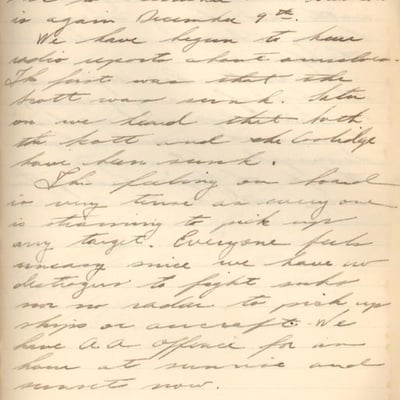 is again December 9th.
We have begun to hear
radio reports about ourselves.
The first was that the
Scott was sunk. Later
on we heard that both
the Scott and the Coolidge
have been sunk.
The feeling on board
is very tense as every one
is straining to pick up
any target. Everyone feels
uneasy since we have no
destroyer to fight subs
nor no radar to pick up
ships or aircraft. We
have AA offence for an
hour at sunrise and
sunsets now.